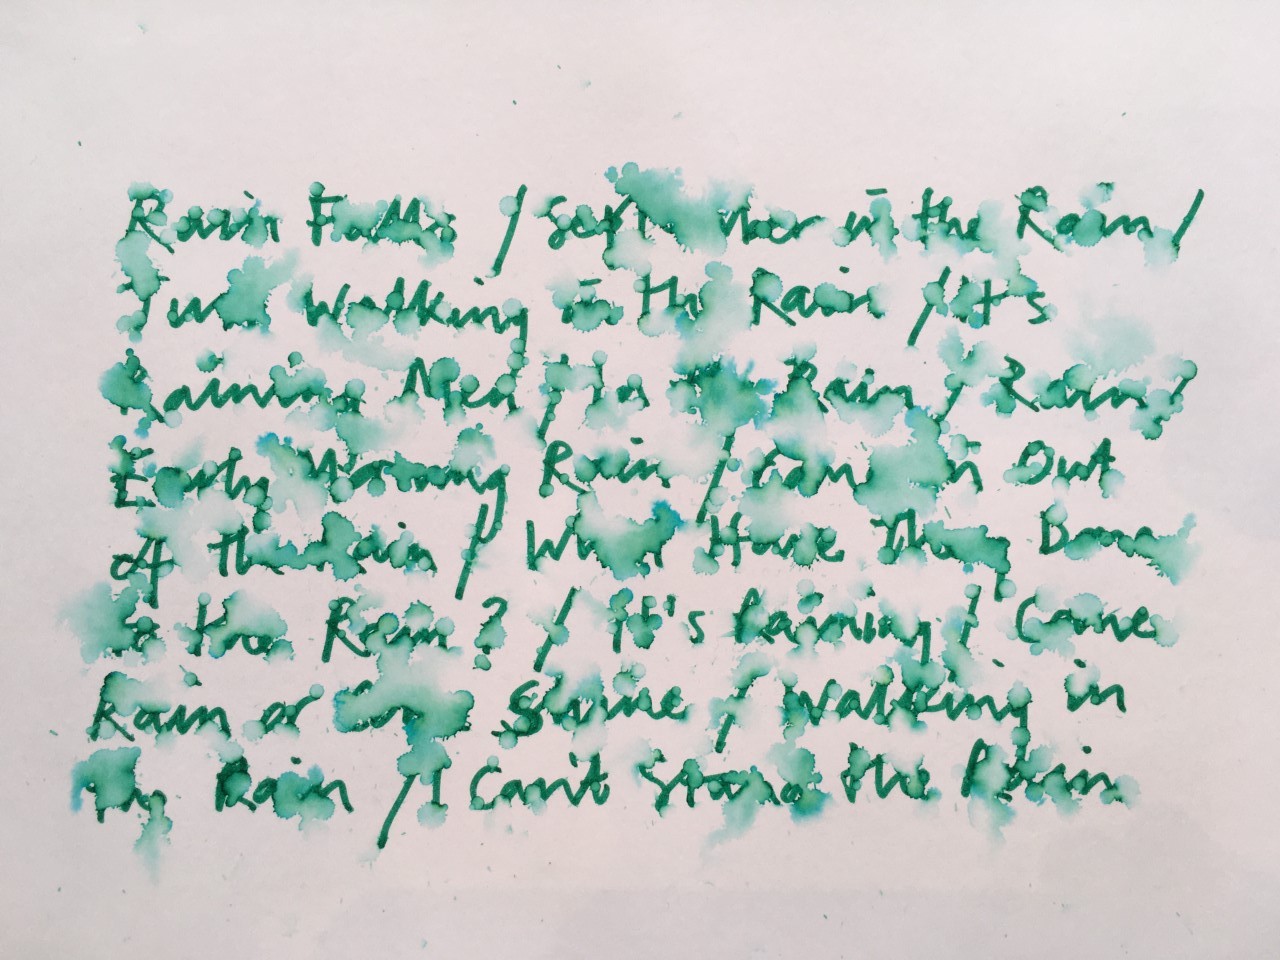 Rain Falls / September in the Rain /
Just Walking in the Rain / It's
Raining Men / In The Rain / Rain /
Early Morning Rain / Come in Out
Of The Rain / What Have They Done
to the Rain? / It's Raining / Come
Rain or Come Shine / Walking in
The Rain / I Can't Stand the Rain